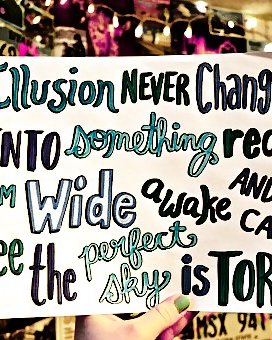 Illusion NEVER Chang
INTO something rea
M Wide awake AND
CA
ee the perfect sky is TOR
MSX 914